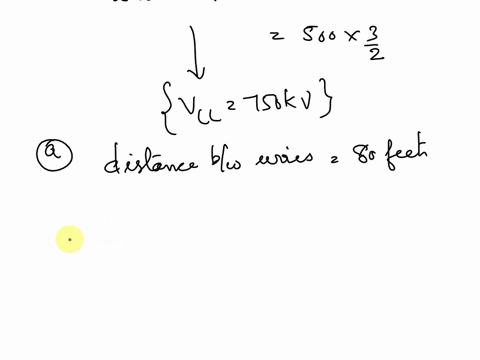 = 500 × 3/2
{V_LL = 750kV}
a distance b/w wries = 80 feet